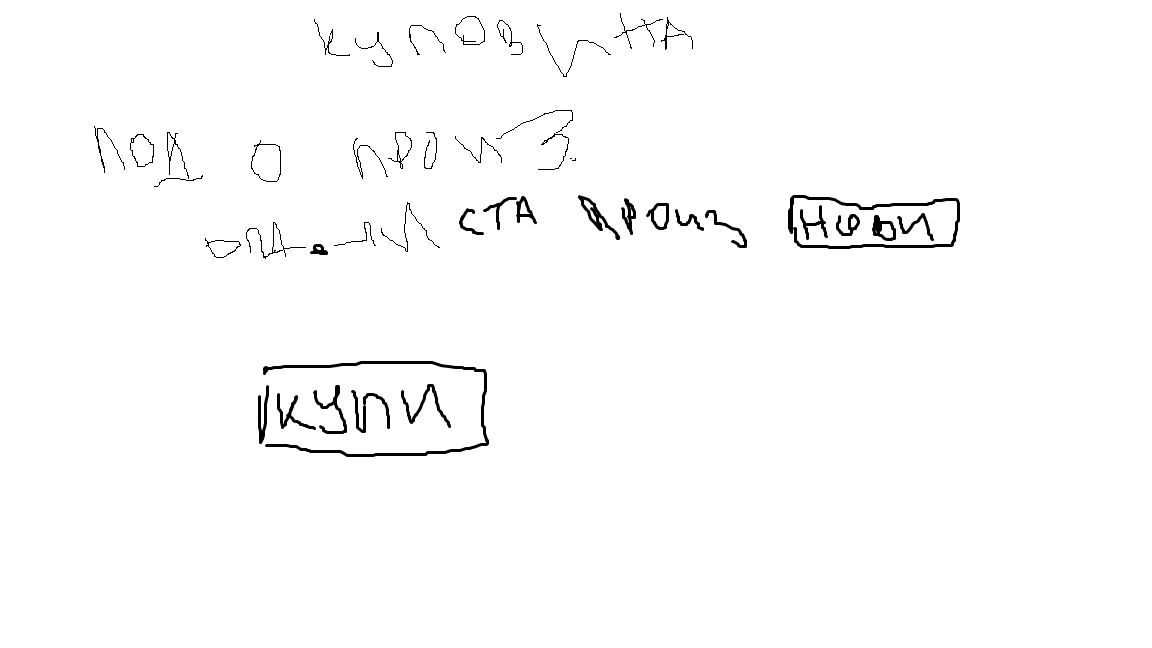 КУПОВИНА
ПОД О ПРОИЗ.
СТА ПРОИЗ НОВИ
КУПИ